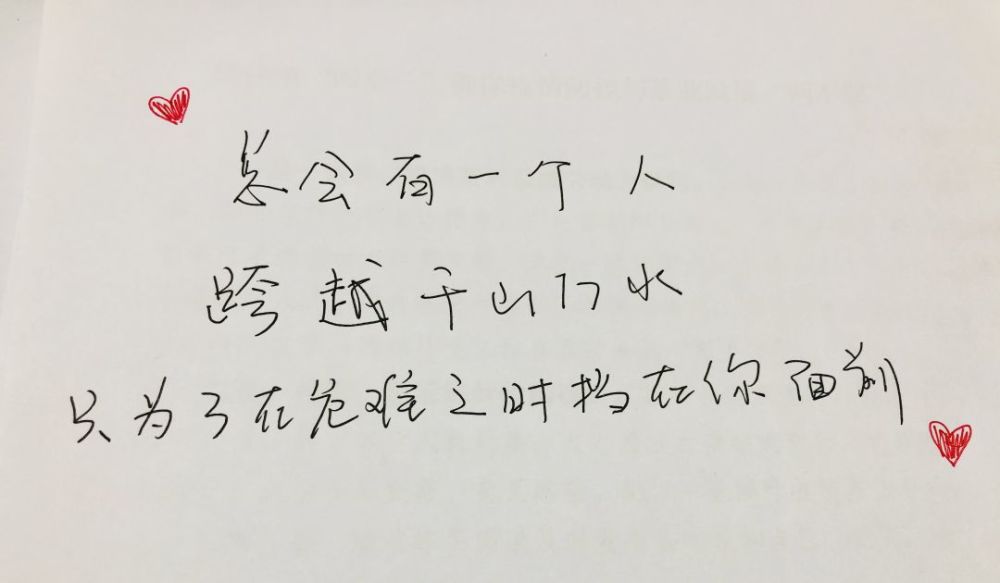 总会有一个人
跨越千山万水
只为了在危难之时挡在你面前